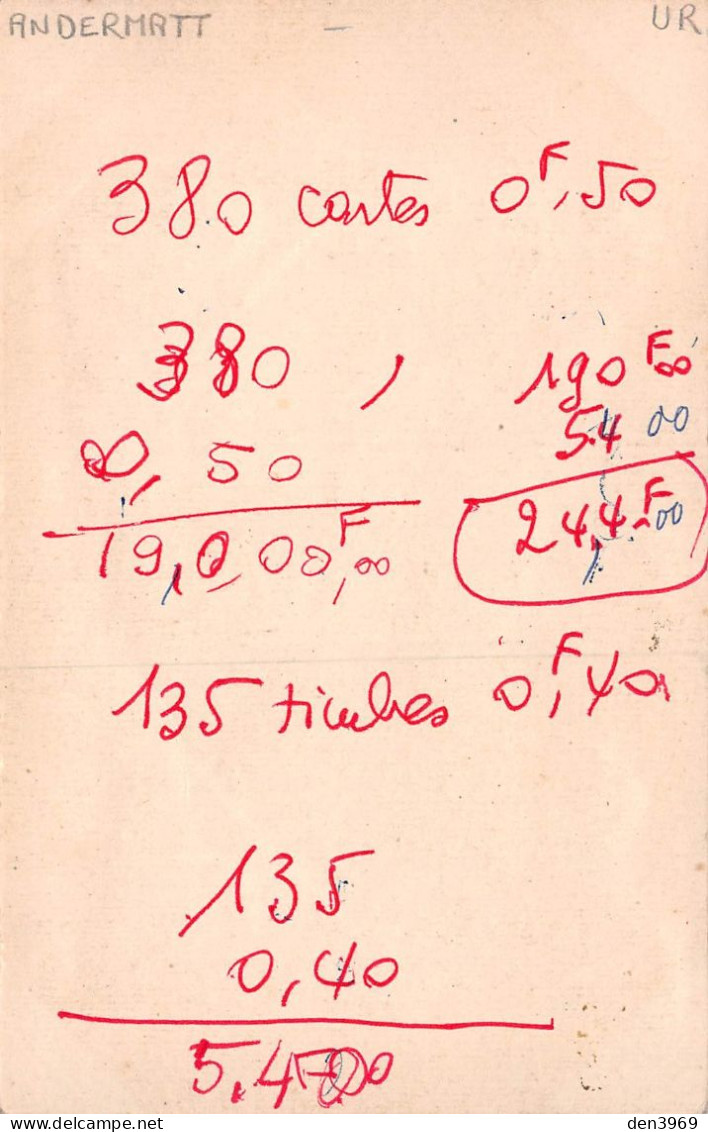 ANDERMATT - UR
380 cartes 0F,50
380 , 190F00
0,50 54 00
19,0,00F,00 244F00
135 timbres 0F,40
135
0,40
5,400
den3969